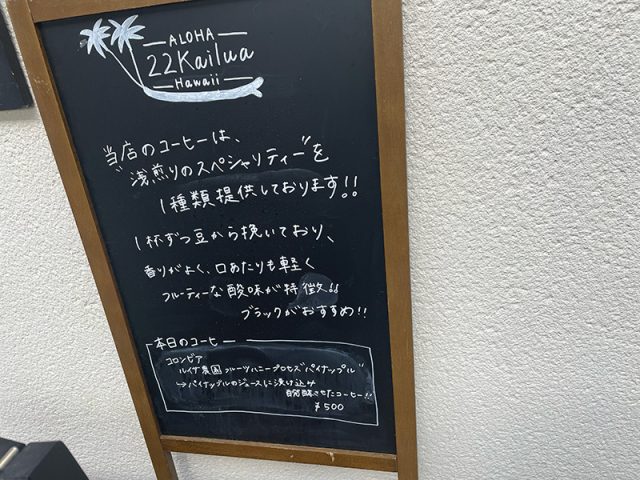 ALOHA
22Kailua
Hawaii
当店のコーヒーは、
"浅煎りのスペシャリティー"を
1種類提供しております!!
1杯ずつ豆から挽いており、
香りがよく、口あたりも軽く
フルーティーな酸味が特徴!!
ブラックがおすすめ!!
本日のコーヒー
コロンビア
ルイナ農園 フルーツハニープロセス"パイナップル"
↳パイナップルのジュースに漬け込み
発酵させたコーヒー!!
¥500